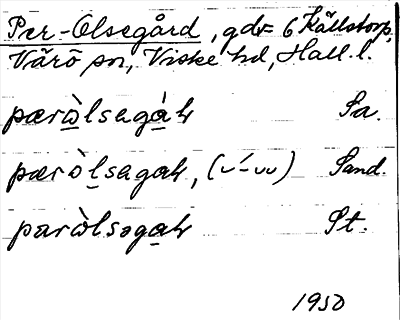 Per-Olsegård, gdr= 6 Källstorp,
Värö sn, Viske hd, Hall. l.
pæròlsagàk Sa.
pæròlsagak, (∪–́∪∪) Sand.
paròlsəgak St.
1950